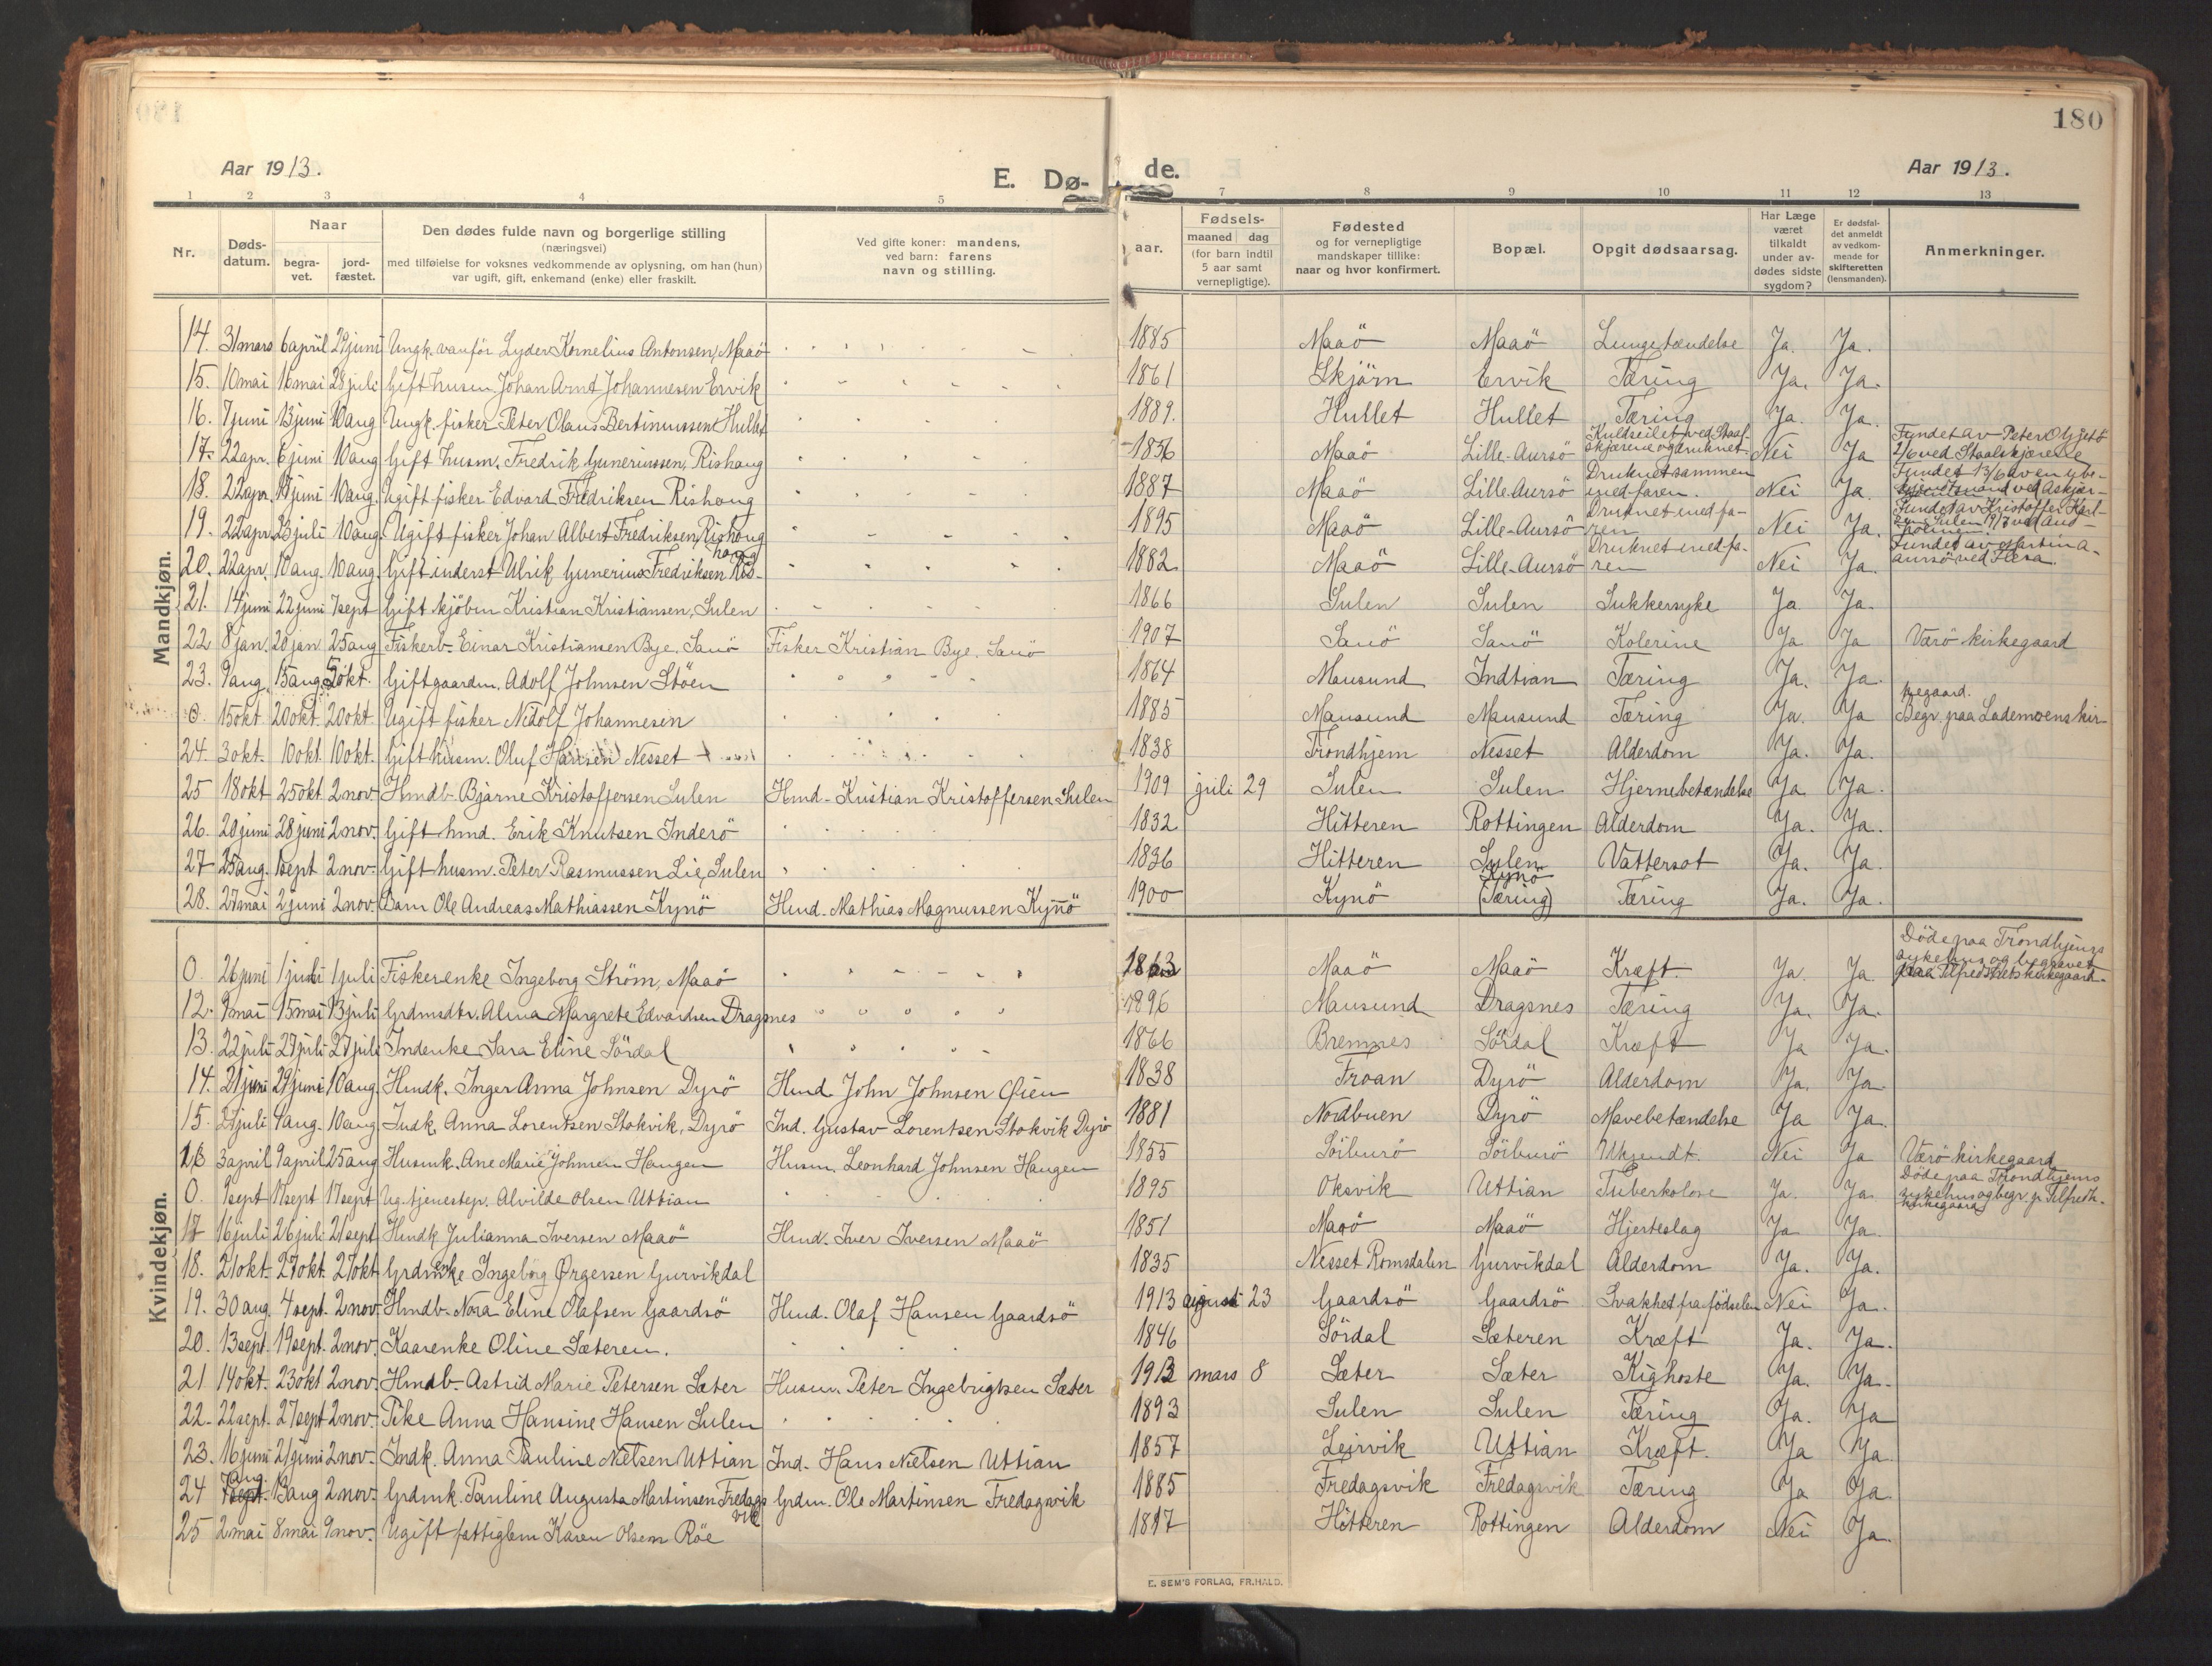 180
Aar 1913.
E. Dø-
de.
Aar 1913.
1 2 3 4 5 7 8 9 10 11 12 13
Nr.
Døds-
datum.
Naar
begra-
vet.
jord-
fæstet.
Den dødes fulde navn og borgerlige stilling
(næringsvei)
med tilføielse for voksnes vedkommende av oplysning, om han (hun)
var ugift, gift, enkemand (enke) eller fraskilt.
Ved gifte koner: mandens,
ved barn: farens
navn og stilling.
aar.
Fødsels-
maaned dag
(for barn indtil
5 aar samt
vernepligtige).
Fødested
og for vernepligtige
mandskaper tillike:
naar og hvor konfirmert.
Bopæl.
Opgit dødsaarsag.
Har Læge
været
tilkaldt
under av-
dødes sidste
sygdom?
Er dødsfal-
det anmeldt
av vedkom-
mende for
skifteretten
(lensmanden).
Anmerkninger.
Mandkjøn.
14. 31 mars 6 april 29 juni Ungk. vanför Lyder Kornelius Antonsen, Maaö 1885 Maaö Maaö Lungetændelse Ja. Ja.
15. 10 mai 16 mai 28 juli Gift husm. Johan Arnt Johannesen Ervik 1861 Skjörn Ervik Tæring Ja. Ja.
16. 7 juni 13 juni 10 aug Ungk. fisker Peter Olaus Bertinussen Hullet 1889. Hullet Hullet Tæring Ja. Ja.
17. 22 apr. 6 juni 10 aug Gift husm. Fredrik Gunerius­sen, Rishaug 1856 Maaö Lille-Aursö Kuldseilet ved Staal-
skjærene og druknet. Nei Ja Fundet av Peter O.
2/6 ved Staalskjærene
18. 22 apr 17 juni 10 aug. Ugift fisker Edvard Fredriksen Rishaug 1887 Maaö Lille Aursö Druknet sammen
med faren. Nei Ja. Fundet 13/6 av en
ved
19. 22 apr 23 juli 10 aug. Ugift fisker Johan Albert Fredriksen, Rishaug 1895 Maaö Lille-Aursö Druknet med fa-
ren Nei Ja. Fundet av Kristoffer Karl-
sen Sulen 19/7 ved
20. 22 apr. 10 aug. 10 aug. Gift inderst Ulrik Gunerius Fredriksen Ris-
haug 1882 Maaö Lille-Aursö Druknet med fa-
ren Nei Ja. Fundet av Martin A-
aursö ved
21. 14 juni 22 juni 7 sept Gift kjöbm Kristian Kristiansen, Sulen 1866 Sulen Sulen Sukkersyke Ja Ja.
22 8 jan. 20 jan 25 aug Fiskerb. Einar Kristiansen Bye, Sanö Fisker Kristian Bye, Sanö 1907 Sanö Sanö Kolerine Ja Ja Værö kirkegaard
23. 9 aug. 15 aug. 5 okt. Gift gaardm. Adolf Johnsen Stöen 1864 Mausund Indtian Tæring Ja. Ja.
0. 15 okt 20 okt. 20 okt. Ugift fisker Nidolf Johannesen 1885 Mausund Mausund Tæring Ja. Ja Begr. paa Lademoens kir-
kegaard.
24. 3 okt. 10 okt. 10 okt. Gift husm. Oluf Hansen Nesset 1838 Trondhjem Nesset Alderdom Ja. Ja.
25 18 okt 25 okt 2 nov. Hmdb. Bjarne Kristoffersen Sulen Hmd. Kristian Kristoffersen Sulen 1909 juli 29 Sulen Sulen Hjernebetændelse Ja Ja.
26. 20 juni 28 juni 2 nov. Gift hmd. Erik Knutsen Inderö 1832 Hitteren Rottingen Alderdom Ja. Ja.
27 25 aug. 1 sept 2 nov. Gift husm. Peter Rasmussen Lie, Sulen 1836 Hitteren Sulen Vattersot Ja. Ja.
28. 27 mai 2 juni 2 nov. Barn Ole Andreas Mathiassen Kynö Hmd. Mathias Magnussen Kynö 1900 Kynö Kynö
(Tæring) Tæring Ja. Ja.
Kvindekjøn.
0. 26 juni 1 juli 1 juli Fiskerenke Ingeborg Ström, Maaö 1863 Maaö Maaö Kræft. Ja. Ja Döde paa Trondhjems
sykehus og begravet
paa Tilfredshets kirkegaard.
12. 9 mai 15 mai 13 juli Grdmsdtr. Alma Margrete Edvardsen Dragsnes 1896 Mausund Dragsnes Tæring Ja. Ja.
13. 22 juli 27 juli 27 juli Indenke Sara Eline Sördal 1866 Bremnes Sördal Kræft Ja Ja.
14. 21 juni 29 juni 10 aug Hmdk. Inger Anna Johnsen Dyrö Hmd John Johnsen Öien 1838 Froan Dyrö Alderdom Ja. Ja.
15. juli 4 aug. 10 aug Indk. Anna Lorentsen Stokvik, Dyrö Ind. Gustav Lorentsen Stokvik Dyrö 1881 Nordbuen Dyrö Mavebetændelse Ja Ja.
16 3 april 9 april 25 aug Husmk. Ane Marie Johnsen Haugen Husm. Leonhard Johnsen Haugen 1855 Sörburö Sörburö Ukjendt. Nei Ja Værö kirkegaard
0. 9 sept 17 sept 17 sept Ug. tjenestep. Alvilde Olsen Uttian 1895 Oksvik Uttian Tuberkolose Ja. Ja. Döde paa Trondhjems
sykehus og begr. p. Tilfredh.
kirkegaard
17 16 juli 26 juli 21 sept Hmdk Julianna Iversen Maaö Hmd. Iver Iversen Maaö 1851 Maaö Maaö Hjerteslag Ja Ja.
18. 21 okt. 27 okt. 27 okt Grdmenke Ingeborg Ørgersen Gurvikdal 1835 Nesset Romsdalen Gurvikdal Alderdom Ja. Ja.
19. 30 aug. 4 sept. 2 nov. Hmdb. Nora Eline Olafsen Gaardsö Hmd. Olaf Hansen Gaardsö 1913 august 23 Gaardsö Gaardsö Svakhet fra födselen Nei Ja.
20. 13 sept. 19 sept. 2 nov. Kaarenke Oline Sæteren. 1846 Sördal Sæteren Kræft Ja. Ja.
21 14 okt. 23 okt 2 nov. Hmdb. Astrid Marie Petersen Sæter Husm. Peter Ingebrigtsen Sæter 1913 mars 8 Sæter Sæter Kighoste Ja. Ja.
22. 22 sept. 27 sept 2 nov. Pike Anna Hansine Hansen Sulen 1893 Sulen Sulen Tæring Ja. Ja
23. 16 juni 21 juni 2 nov. Indk. Anna Pauline Nielsen Uttian Ind. Hans Nielsen Uttian 1857 Leirvik Uttian Kræft. Ja Ja.
24 7 aug. 13 aug 2 nov. Grdmk. Pauline Augusta Martinsen Fredags
vik Grdm. Ole Martinsen Fredagsvik 1885 Fredagsvik Fredagsvik Tæring Ja Ja.
25 2 mai 8 mai 9 nov. Ugift fattiglem Karen Olsen Röe 1817 Hitteren Rottingen Alderdom Nei Ja.
E. SEM'S FORLAG, FR.HALD.